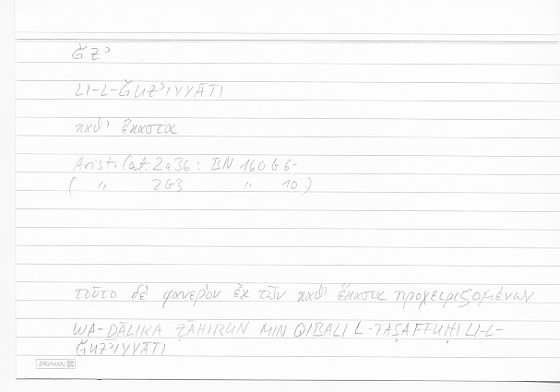 Ǧ Z ʾ
LI-L-ǦUZʾIYYĀTI
καθ' ἕκαστα
Arist. Cat. 2a36 : BN 160 G 6-
( " 2G3 " 10 )
τοῦτο δὲ φανερὸν ἐκ τῶν καθ' ἕκαστα προχειριζομένων
WA-ḎĀLIKA ẒĀHIRUN MIN QIBALI L-TAṢAFFUḤI LI-L-
ǦUZʾIYYĀTI